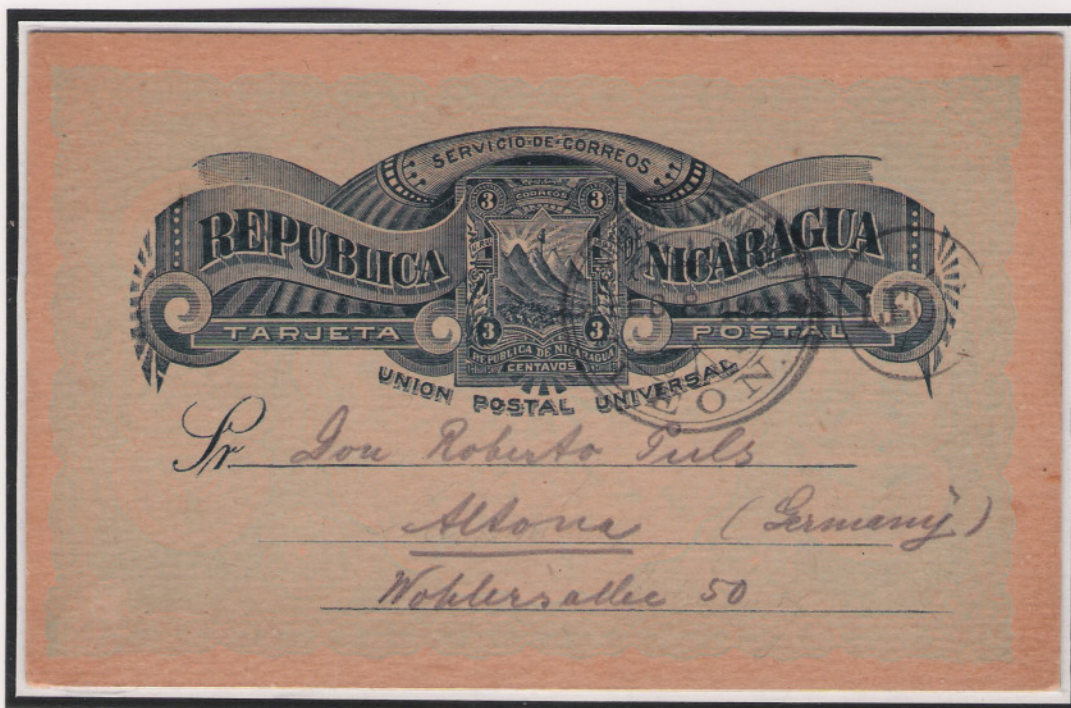 SERVICIO·DE·CORREOS
REPUBLICA NICARAGUA
3 CORREOS 3
3 3
REPUBLICA DE NICARAGUA
CENTAVOS
TARJETA POSTAL
UNION POSTAL UNIVERSAL
LEON.
Sr. Don Roberto Tuls
Altona (Germany)
Wohlersallee 50